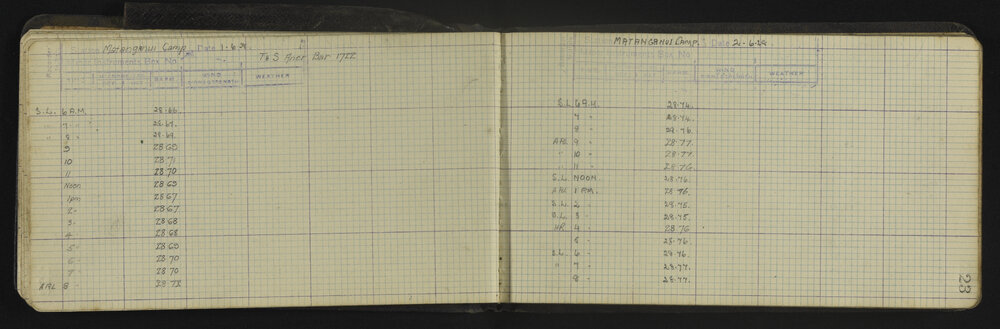 Station Matanganui Camp Date 1-6-29
Instruments Box No
T & S Aner Bar 1722
BAR
WIND
DIRN & STRENGTH
WEATHER
S.L. 6 A.M. 28.66.
" 7 " 28.67.
" 8 " 28.69.
9 28.69
10 28.71
11 28.70
Noon 28.69
1pm 28.67
2- 28.67
3- 28.68
4 28.68
5- 28.69
6- 28.70
7- 28.70
ARL 8 - 28.73
MATANGANUI Camp. Date 2-6-29
Instruments Box No
WIND
DIRN & STRENGTH
WEATHER
S.L. 6 A.M. 28.74.
7 " 28.74.
8 " 28.76.
ARL 9 " 28.77.
" 10 " 28.77.
" 11 " 28.76
S.L. NOON. 28.76.
ARL 1 P.M. 28.76.
S.L. 2 " 28.75.
S.L. 3 " 28.75.
4 " 28.76
5 - 28.76.
S.L. 6 - 28.76.
" 7 - 28.77.
8 - 28.77.
23